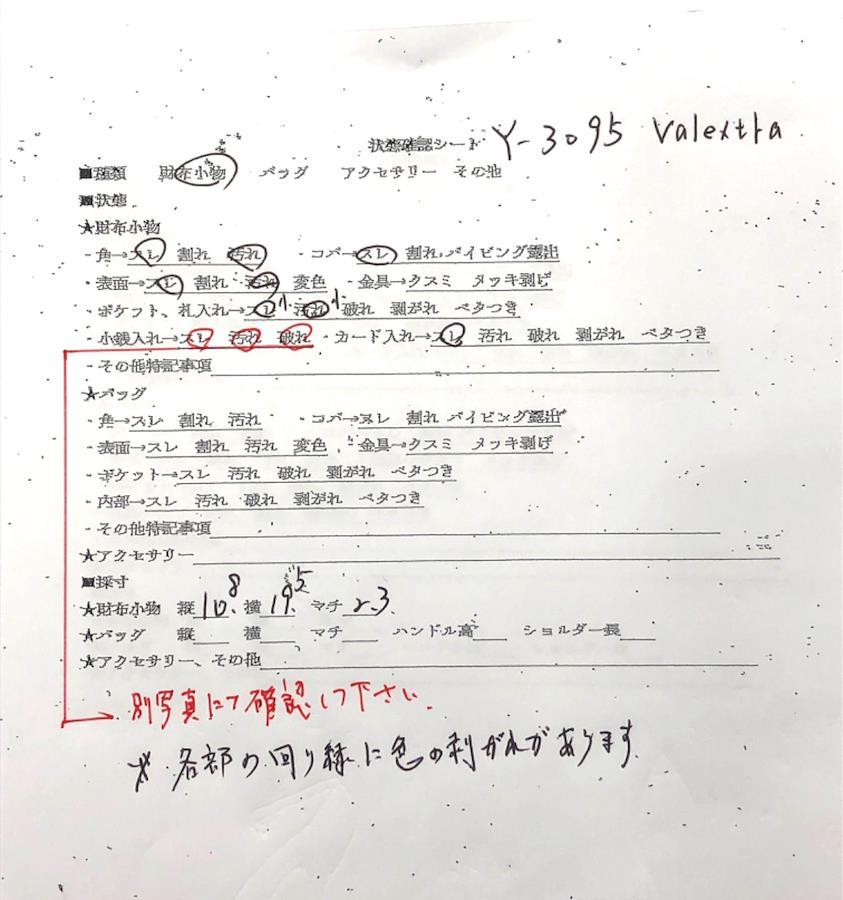 状態確認シート Y-3095 Valextra
■種類 財布小物 バッグ アクセサリー その他
■状態
★財布小物
・角→スレ 割れ 汚れ ・コバ→スレ 割れ パイピング露出
・表面→スレ 割れ 汚れ 変色 ・金具→クスミ メッキ剥げ
・ポケット、札入れ→スレ小 汚れ小 破れ 剥がれ ベタつき
・小銭入れ→スレ 汚れ 破れ ・カード入れ→スレ 汚れ 破れ 剥がれ ベタつき
・その他特記事項
★バッグ
・角→スレ 割れ 汚れ ・コバ→スレ 割れ パイピング露出
・表面→スレ 割れ 汚れ 変色 ・金具→クスミ メッキ剥げ
・ポケット→スレ 汚れ 破れ 剥がれ ベタつき
・内部→スレ 汚れ 破れ 剥がれ ベタつき
・その他特記事項
★アクセサリー
■採寸
★財布小物 縦10.8 横19.5 マチ2.3
★バッグ 縦 横 マチ ハンドル高 ショルダー長
★アクセサリー、その他
別写真にて確認して下さい.
* 各部の回り縁に色の剥がれがあります